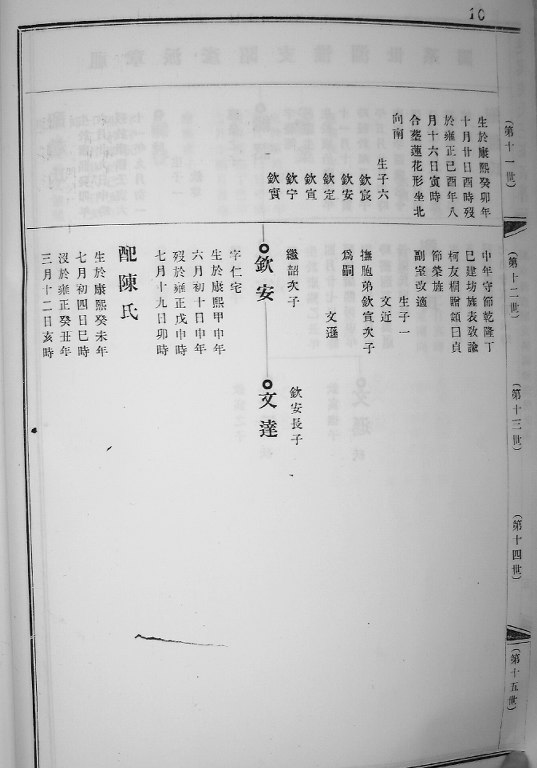 10
(第十一世)
(第十二世)
(第十三世)
(第十四世)
(第十五世)
生於康熙癸卯年
十月廿日酉時歿
於雍正己酉年八
月十六日寅時
合塟蓮花形坐北
向南
生子六
欽宸
欽安
欽定
欽宣
欽宁
欽實
中年守節乾隆丁
巳建坊旌表敕諭
柯友桐贈頌曰貞
節榮旌
副室改適
生子一
文近
撫胞弟欽宣次子
為嗣
文遜
繼詔次子
欽安
字仁宅
生於康熙甲申年
六月初十日申年
歿於雍正戊申時
七月十九日卯時
配陳氏
生於康熙癸未年
七月初四日巳時
沒於雍正癸丑年
三月十二日亥時
欽安長子
文達